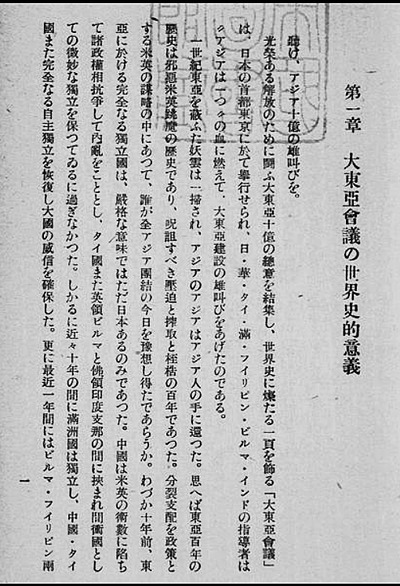 第一章　大東亞會議の世界史的意義
聽け、アジア十億の雄叫びを。
光榮ある解放のために鬪ふ大東亞十億の總意を結集し、世界史に燦たる一頁を飾る「大東亞會議」
は、日本の首都東京に於て擧行せられ、日・華・タイ・滿・フイリピン・ビルマ・インドの指導者は
『アジアは一つ』の血に燃えて、大東亞建設の雄叫びをあげたのである。
一世紀東亞を蔽ふた妖雲は一掃され、アジアのアジアはアジア人の手に還つた。思へば東亞百年の
歷史は邪惡米英跳梁の歷史であり、呪詛すべき壓迫と搾取と桎梏の百年であつた。分裂支配を政策と
する米英の謀略の中にあつて、誰が全アジア團結の今日を豫想し得たであらうか。わづか十年前、東
亞に於ける完全なる獨立國は、嚴格な意味ではただ日本あるのみであつた。中國は米英の術數に陷ち
て諸政權相抗爭して內亂をこととし、タイ國また英領ビルマと佛領印度支那の間に挾まれ間衝國とし
ての微妙な獨立を保つてゐるに過ぎなかつた。しかるに近々十年の間に滿洲國は獨立し、中國・タイ
國また完全なる自主獨立を恢復し大國の威信を確保した。更に最近一年間にはビルマ・フイリピン兩
一